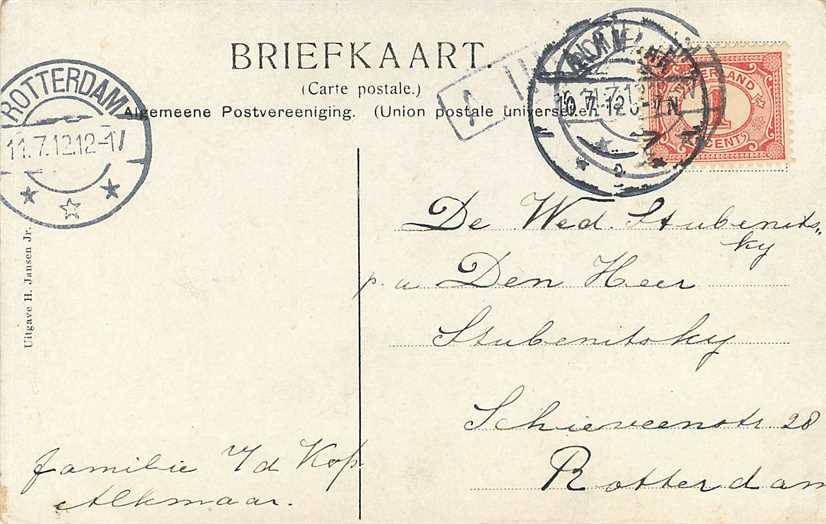 BRIEFKAART.
(Carte postale.)
Algemeene Postvereeniging. (Union postale universelle.)
ROTTERDAM
11.7.12 12-1V
10.7.12 6-7N
NEDERLAND
1
CENT
De Wed. Stubenits„
ky
p. a. Den Heer
Stubenitsky
Schieveenstr. 28
Rotterdam
familie v/d Kop.
Alkmaar.
Uitgave H. Jansen Jr.